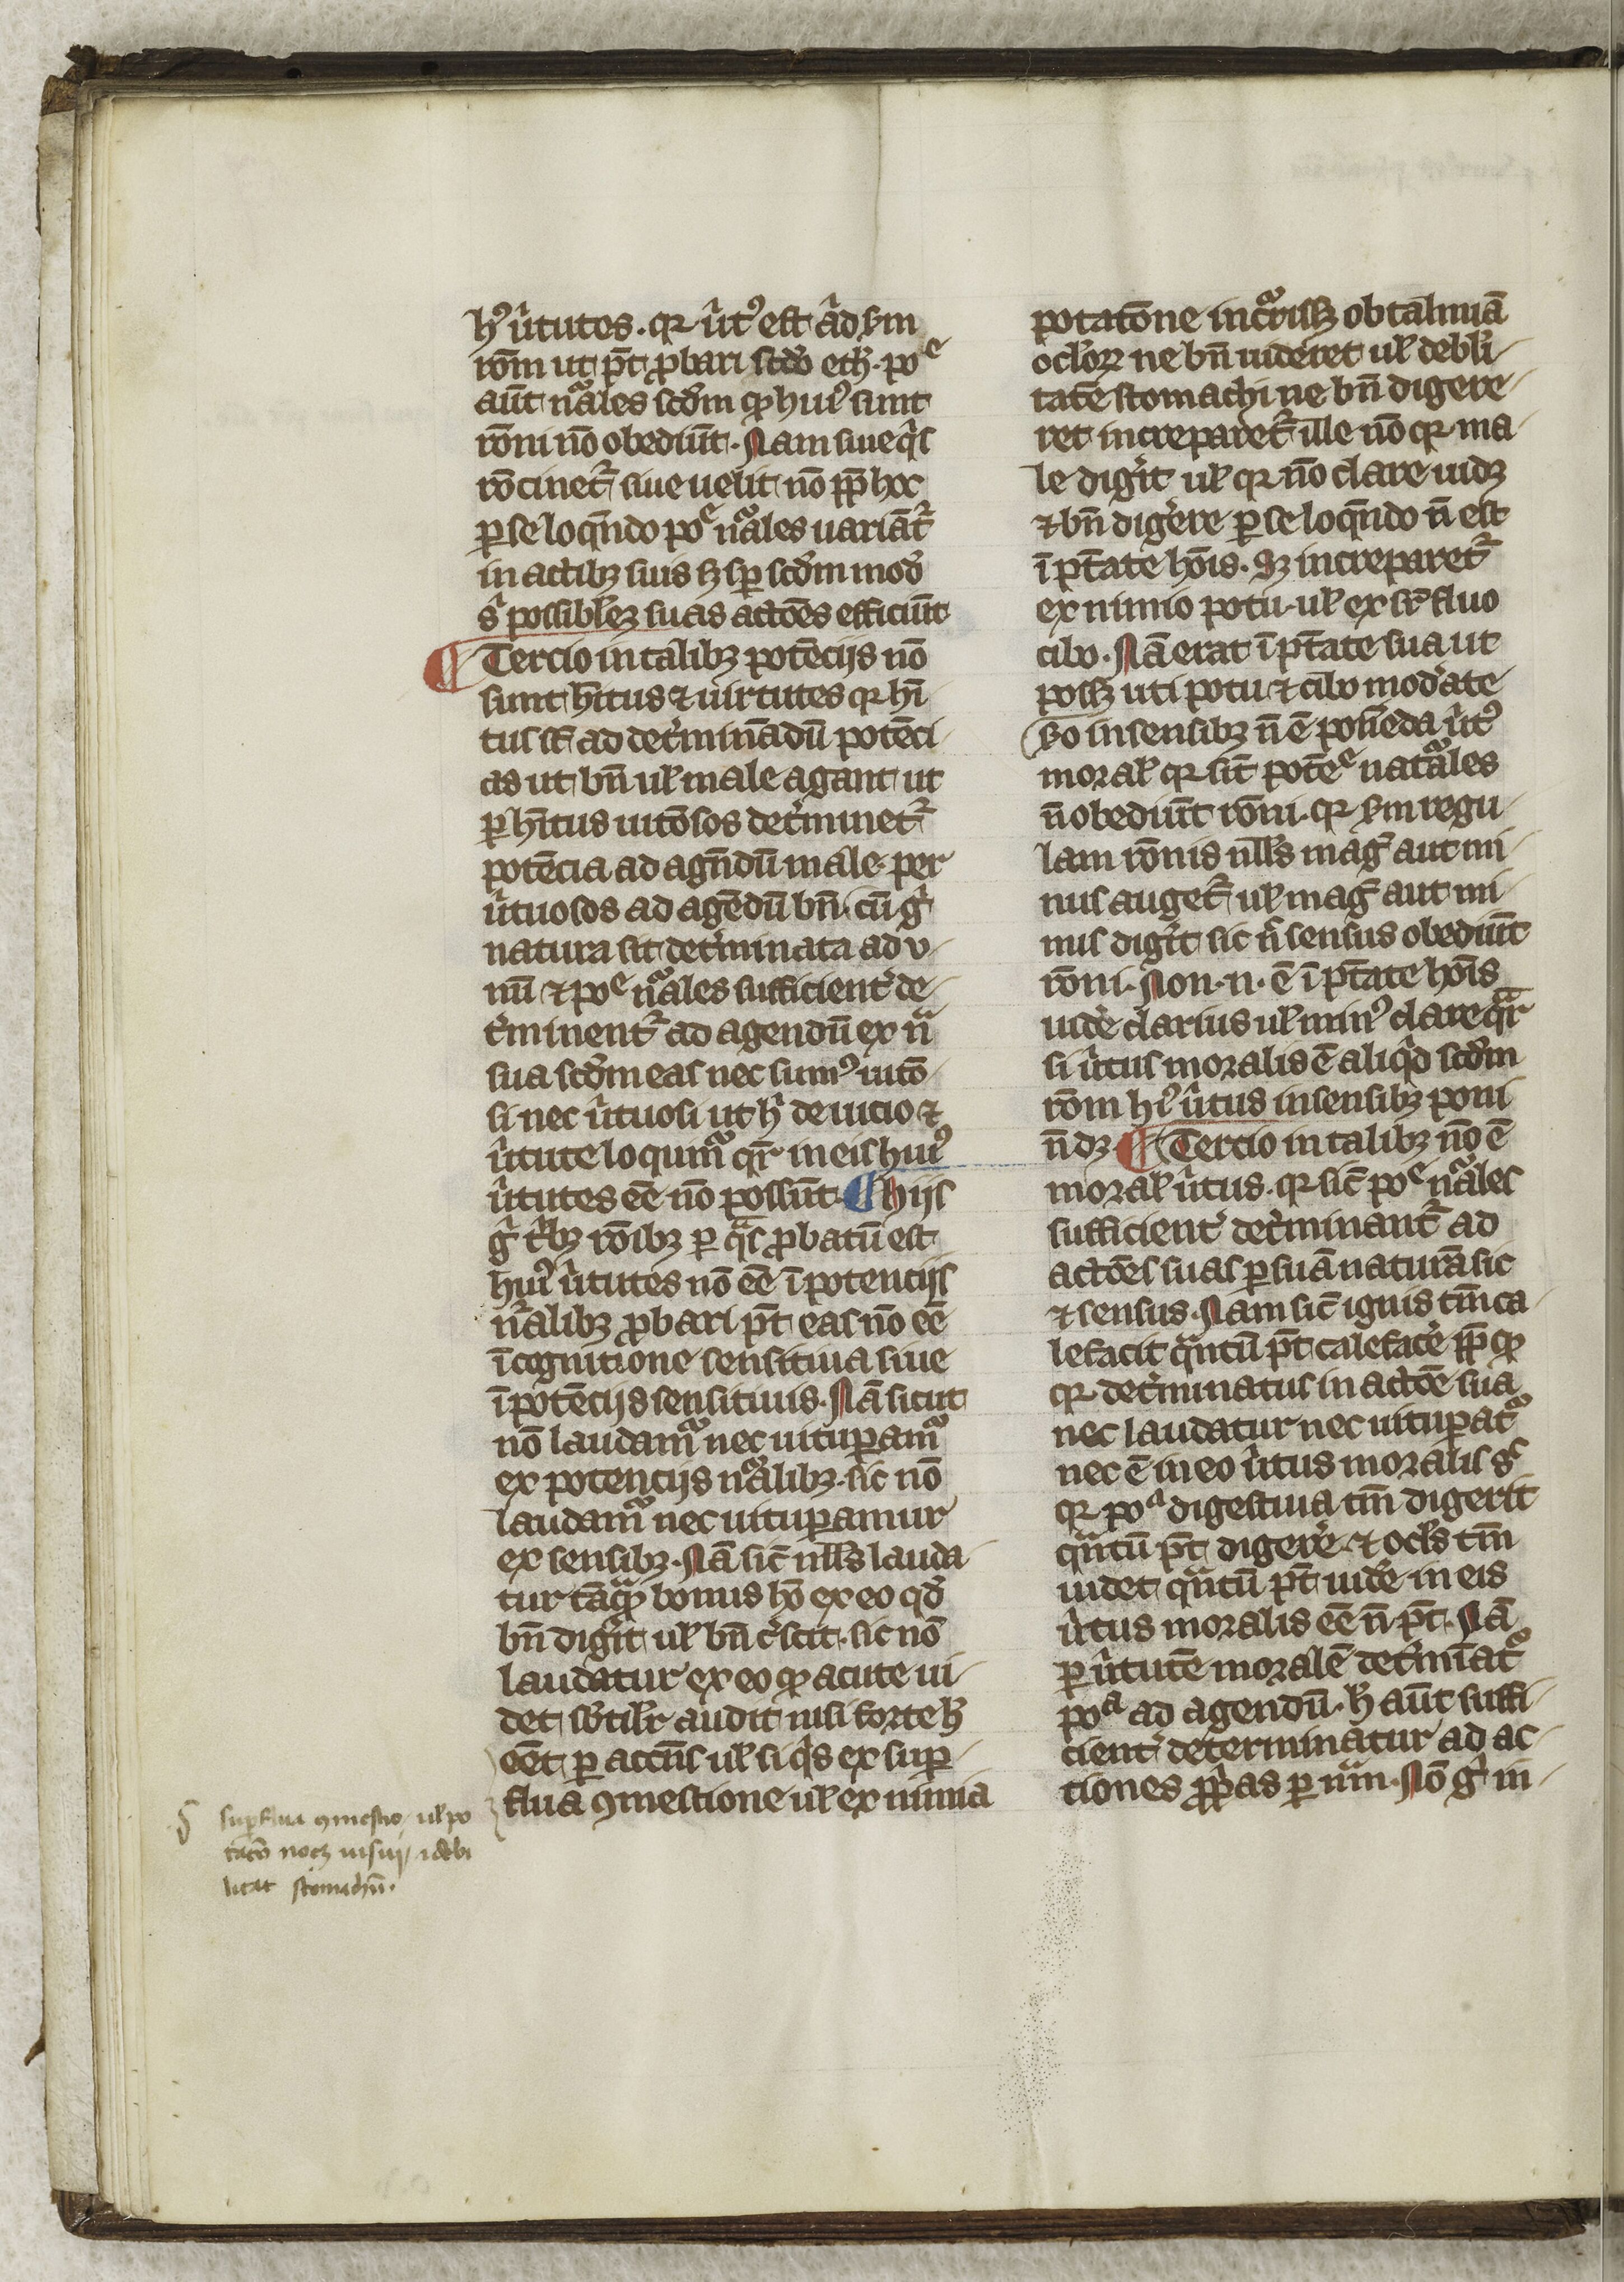 hꝰ ûtutes . qr ût' est âd ẜm
rōm ut p̄t ꝓbari scd'o eth. poᵉ
aūt nᵃ̄les scd'm ꝙ huiꝰ sunt
rōni nō obediūt . Nam siue q'is
rōcinet᷑ siue uelit nō ꝓp̄ hoc
ꝑ se loq̄ndo poᵉ nᵃ̄les uariāt᷑
in actibꝫ suis sꝫ sꝑ scd'm mod'
s' possiblez suas actōes efficiūt
¶ Tercio in talibꝫ potēcijs nō
sunt hītus ⁊ uirtutes qr hī
tus st̄ ad det'minādū potēci
as ut bn̄ ul male agant ut
ꝑ hītus uitōsos det'minet᷑
potēcia ad agn̄dū male . per
ûtuosos ad agēdū bn̄ . cū g'
natura sit det'minata ad v
nū ⁊ poᵉ nᵃ̄les sufficient' de
t'minent᷑ ad agendū ex nᵃ̄
sua scd'm eas nec sumꝰ uitō
si nec ûtuosi ut h' de uicio ⁊
ûtute loquimᷣ qr̄ in eis huiꝰ
ûtutes eē nō possūt . ¶ hijs
g' t'bꝫ rōibꝫ ꝑ qᵃs ꝓbatū est
huiꝰ ûtutes nō eē ī potentijs
nᵃ̄libꝫ ꝓbari p̄t eas nō eē
ī cognitione sensitiua siue
ī potēcijs sensitiuis . Nā sicut
nō laudamᷣ nec uituꝑamᷣ
ex potencijs nᵃ̄libꝫ . sic nō
laudamᷣ nec uituꝑamur
ex sensibꝫ . Nā sic̄ nll's lauda
tur tāqᵃ̄ bonus hō ex eo qd'
bn̄ dig'it ul bn̄ c'scit . sic nō
laudatur ex eo ꝙ acute ui
det sb'tilr audit nisi forte h'
eēt ꝑ accn̄s ul si q'is ex suꝑ
flua ꝯmestione ul ex nimia
δ suꝑflua ꝯmestio ul po
tacō nocꝫ uisui ⁊ debi
litat stomachū .
potatōne incᷓriss obtalmiā
ocl'oꝝ ne bn̄ uideret ul debli
tatē stomachi ne bn̄ digere
ret increparet᷑ ille nō qr ma
le dig'it ul qr nō clare uidꝫ
⁊ bn̄ dig'ere ꝑ se loq̄ndo n̄ est
ī p̄tate hōis . Sꝫ increparet᷑
ex nimio potu . ul ex suꝑfluo
cibo . Nā erat ī p̄tate sua ut
possꝫ uti potu ⁊ cibo mod'ate
So in sensibꝫ n̄ ē ponēda ût'
moral qr sic̄ potēᵉ natᵃ̄les
n̄ obediūt rōni . qr ẜm regu
lam rōnis nll's mag' aut mi
nus auget᷑ ul mag' aut mi
nus dig'it sic n̄ sensus obediūt
rōni . Non . n . ē ī p̄tate hōis
uid'e clarius ul minꝰ clare qᵃr
si ûtus moralis ē aliq'd scd'm
rōm hiꝰ ûtus in sensibꝫ poni
n̄ dꝫ ¶ Tercio in talibꝫ nō ē
moral ûtus . qr sic̄ poᵉ nᵃ̄les
sufficient' det'minant᷑ ad
actōes suas ꝑ suā naturā sic
⁊ sensus . Nam sic̄ ignis tm̄ ca
lefacit qᵃntū p̄t calefac'e ꝓp̄ ꝙ
qr det'minatus in actōe sua
nec laudatur nec uituꝑatᷣ
nec ē in eo ûtus moralis sᶜ
qr poᵃ digestiua tm̄ digerit
qᵃntū p̄t diger'e . ⁊ ocl's tm̄
uidet qᵃntū p̄t uid'e in eis
ûtus moralis eē n̄ p̄t . Nā
ꝑ ûtutē moralē det'mīatᷣ
poᵃ ad agendū . h' aūt suffi
cient' determinatur ad ac
tiones ꝓp̄as ꝑ nᵃ̄m . Nō g' in